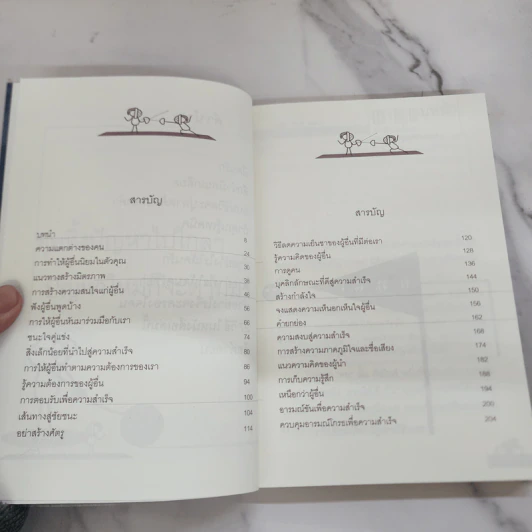 สารบัญ
บทนำ 6
ความแตกต่างของคน 24
การทำให้ผู้อื่นนิยมในตัวคุณ 30
แนวทางสร้างมิตรภาพ 36
การสร้างความสนใจแก่ผู้อื่น 46
ฟังผู้อื่นพูดบ้าง 56
การให้ผู้อื่นหันมาร่วมมือกับเรา 66
ชนะใจคู่แข่ง 74
สิ่งเล็กน้อยที่นำไปสู่ความสำเร็จ 80
การให้ผู้อื่นทำตามความต้องการของเรา 86
รู้ความต้องการของผู้อื่น 94
การตอบรับเพื่อความสำเร็จ 100
เส้นทางสู่ชัยชนะ 104
อย่าสร้างศัตรู 114
สารบัญ
วิธีลดความเย็นชาของผู้อื่นที่มีต่อเรา 120
รู้ความคิดของผู้อื่น 128
การดูคน 136
บุคลิกลักษณะที่ดีสู่ความสำเร็จ 144
สร้างกำลังใจ 150
จงแสดงความเห็นอกเห็นใจผู้อื่น 156
คำยกย่อง 162
ความสงบสู่ความสำเร็จ 168
การสร้างความภาคภูมิใจและชื่อเสียง 174
แนวความคิดของผู้นำ 182
การเก็บความรู้สึก 188
เหนือกว่าผู้อื่น 194
อารมณ์ขันเพื่อความสำเร็จ 200
ควบคุมอารมณ์โกรธเพื่อความสำเร็จ 204